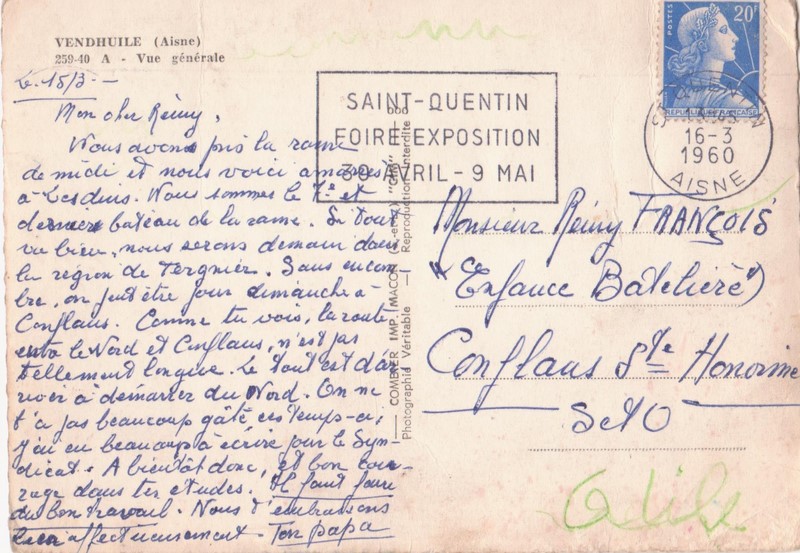 VENDHUILE (Aisne)
259-40 A - Vue générale
Le 15/3 -
Mon cher Rémy,
Nous avons pris la rame
de midi et nous voici amarrés
à Lesdins. Nous sommes le 7e et
dernier bateau de la rame. Si tout
va bien, nous serons demain dans
la région de Tergnier. Sans encom-
bre, on peut être pour dimanche à
Conflans. Comme tu vois, la route
entre le Nord et Conflans, n'est pas
tellement longue. Le tout est d'ar
river à démarrer du Nord. On ne
t'a pas beaucoup gâté ces temps-ci,
j'ai eu beaucoup à écrire pour le Syn-
dicat. A bientôt donc, et bon cou-
rage dans tes études. Il faut faire
du bon travail. Nous t'embrassons
bien affectueusement. Ton papa
COMBIER IMP. MACON (S.-et-L.) "CIM"
Photographie Véritable — Reproduction Interdite
SAINT-QUENTIN
FOIRE-EXPOSITION
30 AVRIL - 9 MAI
20F
POSTES
REPUBLIQUE FRANÇAISE
16-3
1960
AISNE
Monsieur Rémy FRANÇOIS
"Enfance Batelière"
Conflans Ste Honorine
S&O
Odile